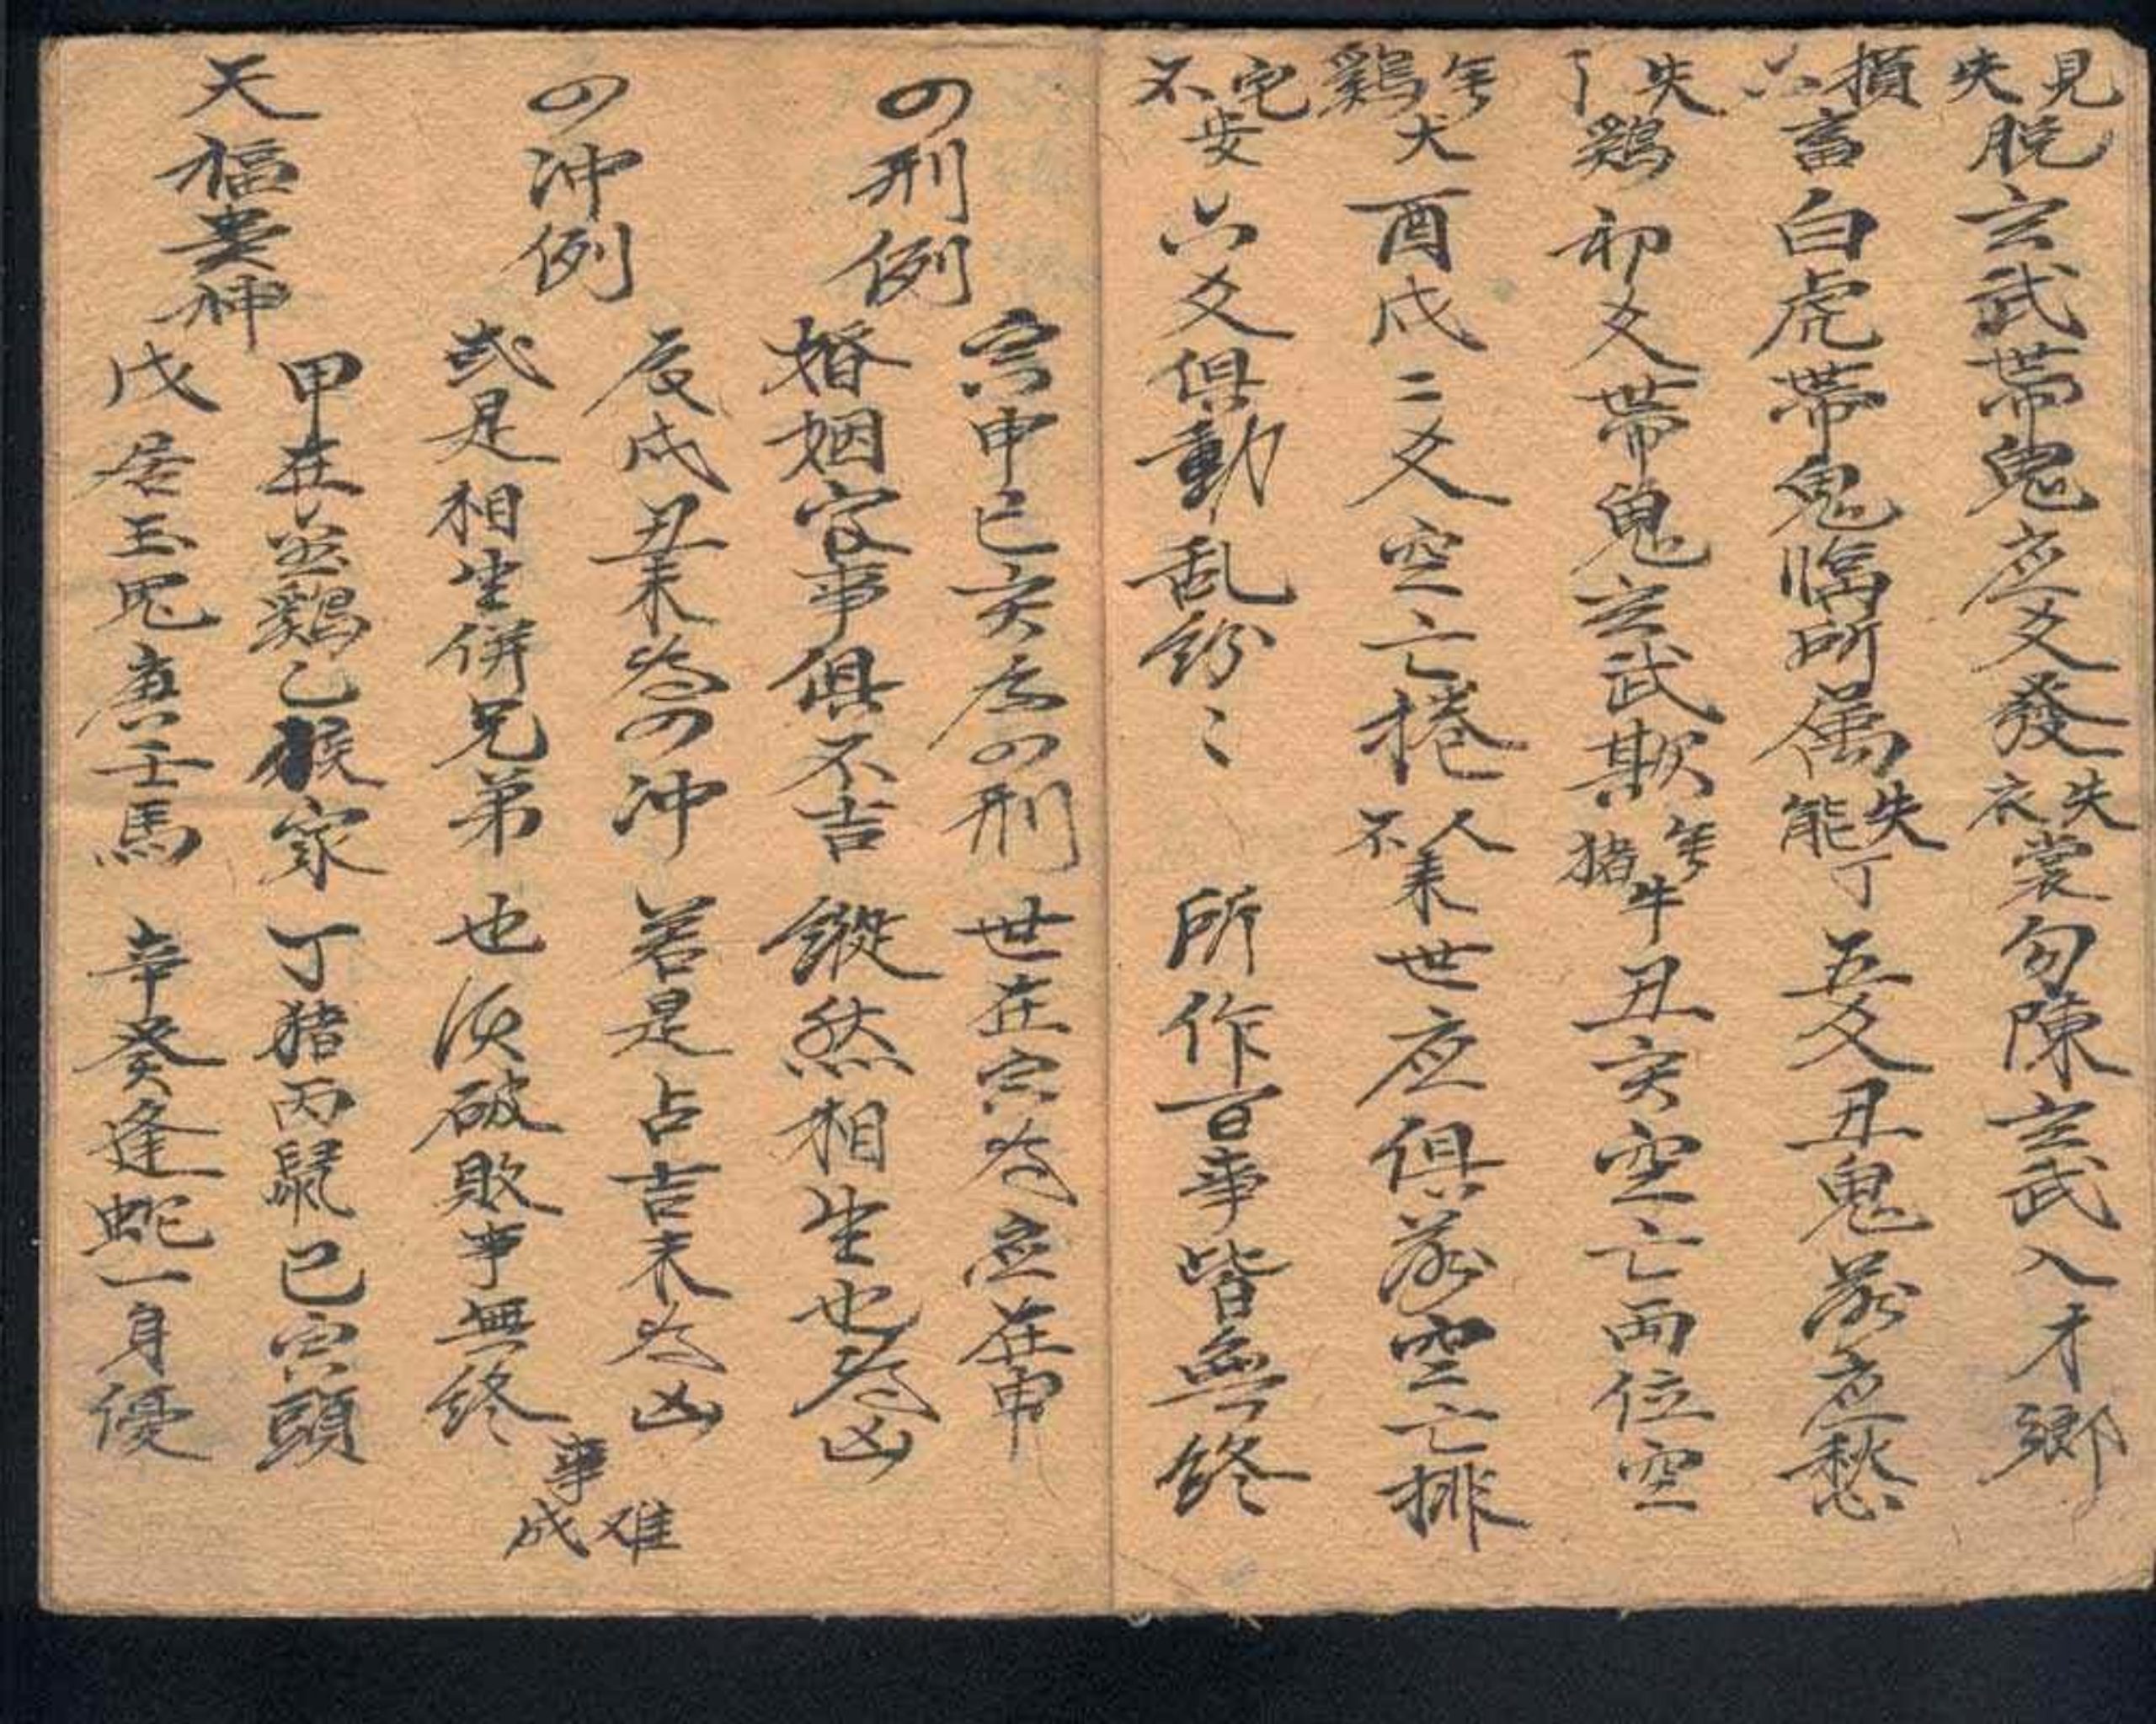 見失脱 玄武帶鬼应爻發 失衣裳 勾陳玄武入才鄉
損六畜 白虎帶鬼臨所属 失能丁 五爻丑鬼落应愁
失了鶏 卯爻帶鬼玄武欺 無猪牛 丑亥空亡两位空
無鷄犬 酉戌二爻空亡捲 人不来 世应俱落空亡排
宅不安 六爻俱動乱紛〻 所作百事皆無終
の刑例
寅申巳亥为の刑 世在寅为应在申
婚姻官事俱不吉 縱然相生也为凶
の冲例
辰戌丑未为の冲 若是占吉未为凶
或是相生併兄弟 也須破敗事無終
事难成
天福貴神
甲在金鷄乙猴家 丁猪丙鼠己寅頭
戊居玉兎庚壬馬 辛癸逢蛇一身優